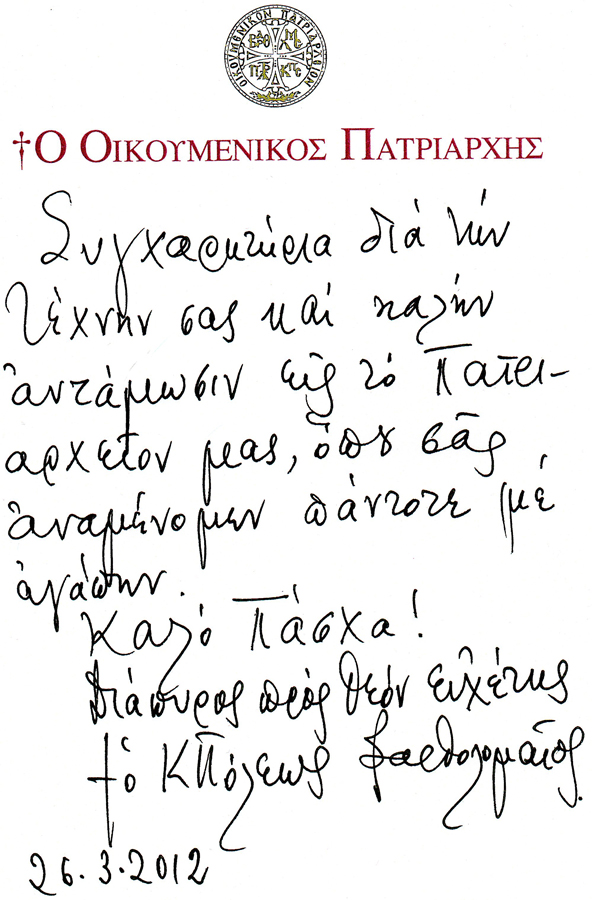 ΟΙΚΟΥΜΕΝΙΚΟΝ ΠΑΤΡΙΑΡΧΕΙΟΝ
†Ο ΟΙΚΟΥΜΕΝΙΚΟΣ ΠΑΤΡΙΑΡΧΗΣ
Συγχαρητήρια διά τήν
τέχνην σας καί καλήν
ἀντάμωσιν εἰς τό Πατρι-
αρχεῖον μας, ὅπου σᾶς
ἀναμένομεν πάντοτε μέ
ἀγάπην.
Καλό Πάσχα!
Διάπυρος πρός Θεόν εὐχέτης
† ὁ ΚΠόλεως Βαρθολομαῖος
26.3.2012